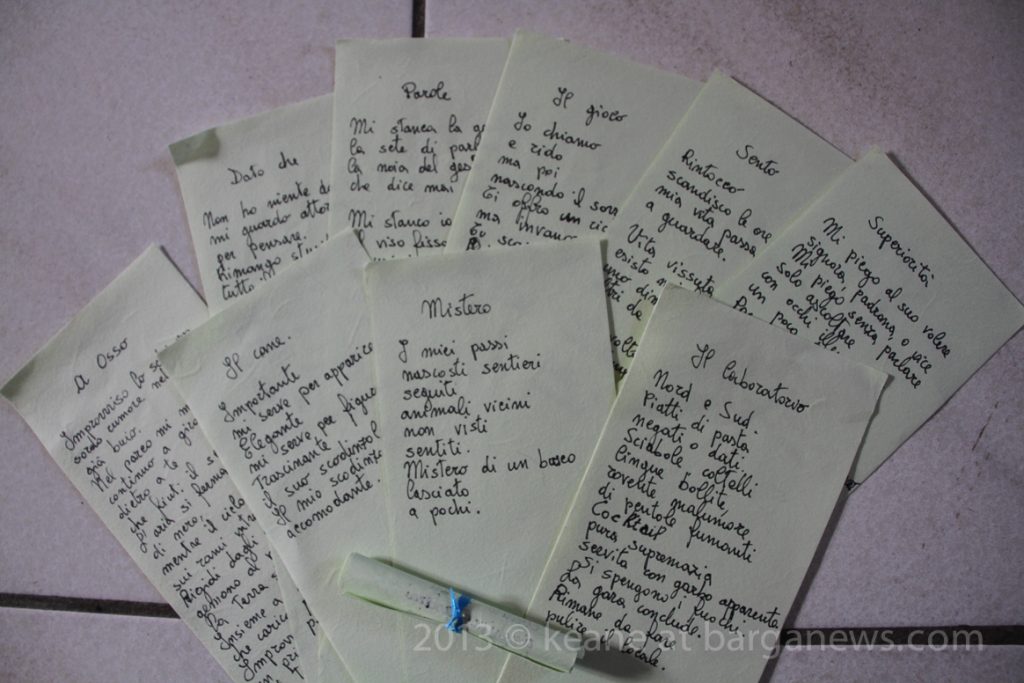 Dato che
Non ho niente da
mi guardo attor
per pensare.
Rimango
tutto
Parole
Mi stanca la ge
la sete di parl
la noia del ges
che dice mai
Mi stanco io
il viso fisso
Il gioco
Io chiamo
e rido
ma poi
nascondo il sorr
ti offro un cic
ma invano
Sento
Rintocco
scandisco le ore
mia vita passa
a guardare.
Vita vissuta
esisto
Superiorità
Mi piego al suo volere
signora, padrona, o pice
Mi piego senza parlare
solo ascoltare
con occhi
un poco
A Osso
Improvviso lo
sordo rumore nel
già buio.
Nel parco mi
continuo a gira
dietro a te
che fiuti: il
L'aria si ferma
di nero,
mentre il cielo
sui rami
Rigidi dagli
gettono al
La Terra
Insieme a
che caric
Improvvi
Il cane.
Importante
mi serve per apparire
Elegante
mi serve per figura
Trascinante
il suo scodinzol
Il mio scodinz
accomodante.
Mistero
I miei passi
nascosti sentieri
seguiti
animali vicini
non visti
sentiti.
Mistero di un bosco
lasciato
a pochi.
Il Laboratorio
Nord e Sud.
Piatti di pasta
negati o dati.
Sciabole coltelli
lingue bollite,
roventi
di pentole fumanti
Cocktail
pura supremazia
servita con garbo apparente
Si spengono i fuochi.
La gara conclude.
Rimane da fare
pulire il locale.
2013 © keane at barganews.com